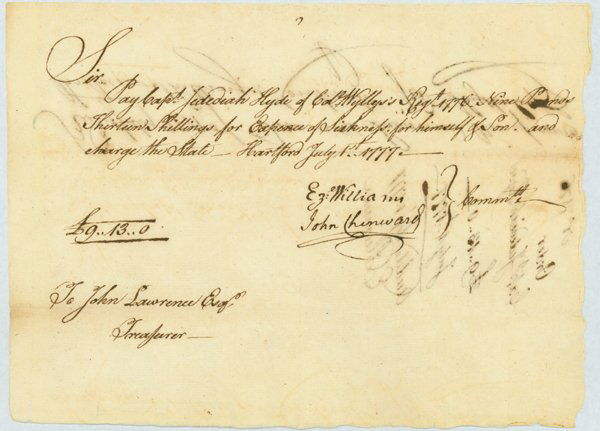 Sir
Pay Capt. Jedediah Hyde of Col. Wyllys's Regt. 1776 Nine Pounds
Thirteen Shillings for Expence of Sickness for himself & Son, and
charge the State — Hartford July 1st. 1777 —
Ez. Williams
John Chenward } Committe
£9..13..0
To John Lawrence Esqr.
Treasurer —